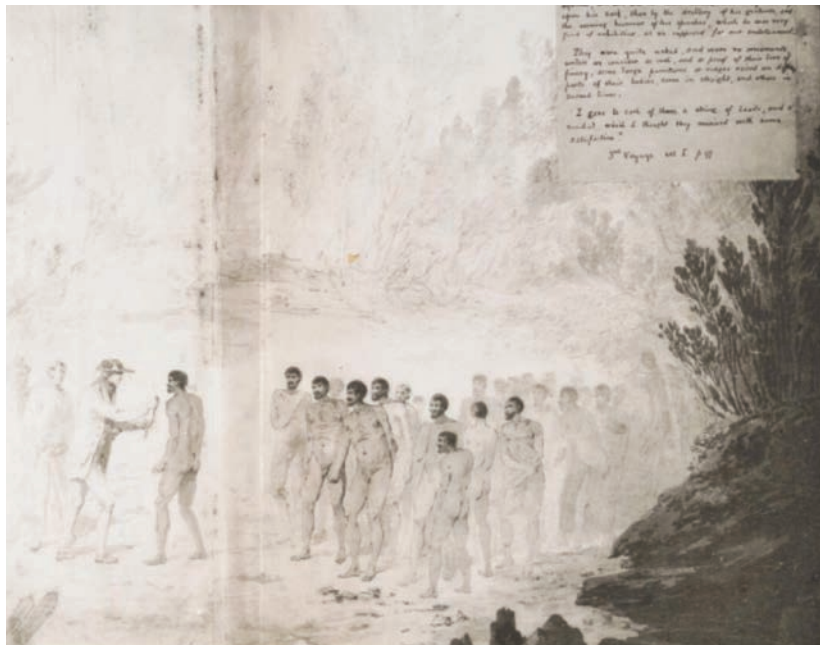 upon his rock, than by the drollery of his gestures, and
the uncommon humour of his speeches, which he was very
fond of exhibiting, as we supposed for our entertainment.
They were quite naked, and wore no ornaments,
unless we consider as such, and a proof of their love of
finery, some large punctures or ridges raised on diff
parts of their bodies, some in straight, and others in
curved lines.
I gave to each of them a string of beads, and a
medal which I thought they received with some
satisfaction"
3rd Voyage vol I. p